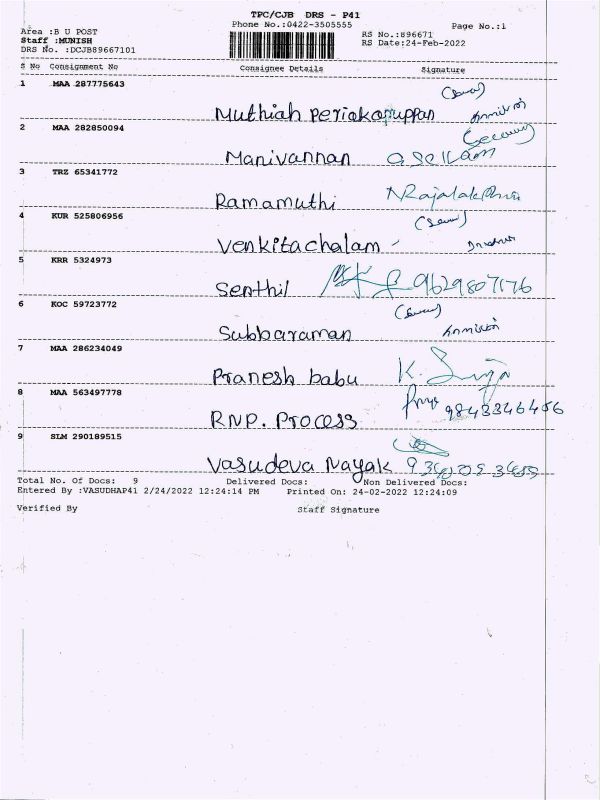 TPC/CJB DRS - P41
Phone No.:0422-3505555
Page No.:1
Area :B U POST
RS No.:896671
Staff :MUNISH
RS Date:24-Feb-2022
DRS No. :DCJB89667101
S No Consignment No Consignee Details Signature
1 MAA 287775643
Muthiah Periakaruppan
2 MAA 282850094
Manivannan
3 TRZ 65341772
Ramamuthi
4 KUR 525806956
Venkitachalam
5 KRR 5324973
Senthil 9629807176
6 KOC 59723772
Subbaraman
7 MAA 286234049
Pranesh babu K.
8 MAA 563497778
RNP. Process 9843346456
9 SLM 290189515
Vasudeva Nayak
Total No. Of Docs: 9 Delivered Docs: Non Delivered Docs:
Entered By :VASUDHAP41 2/24/2022 12:24:14 PM Printed On: 24-02-2022 12:24:09
Verified By Staff Signature